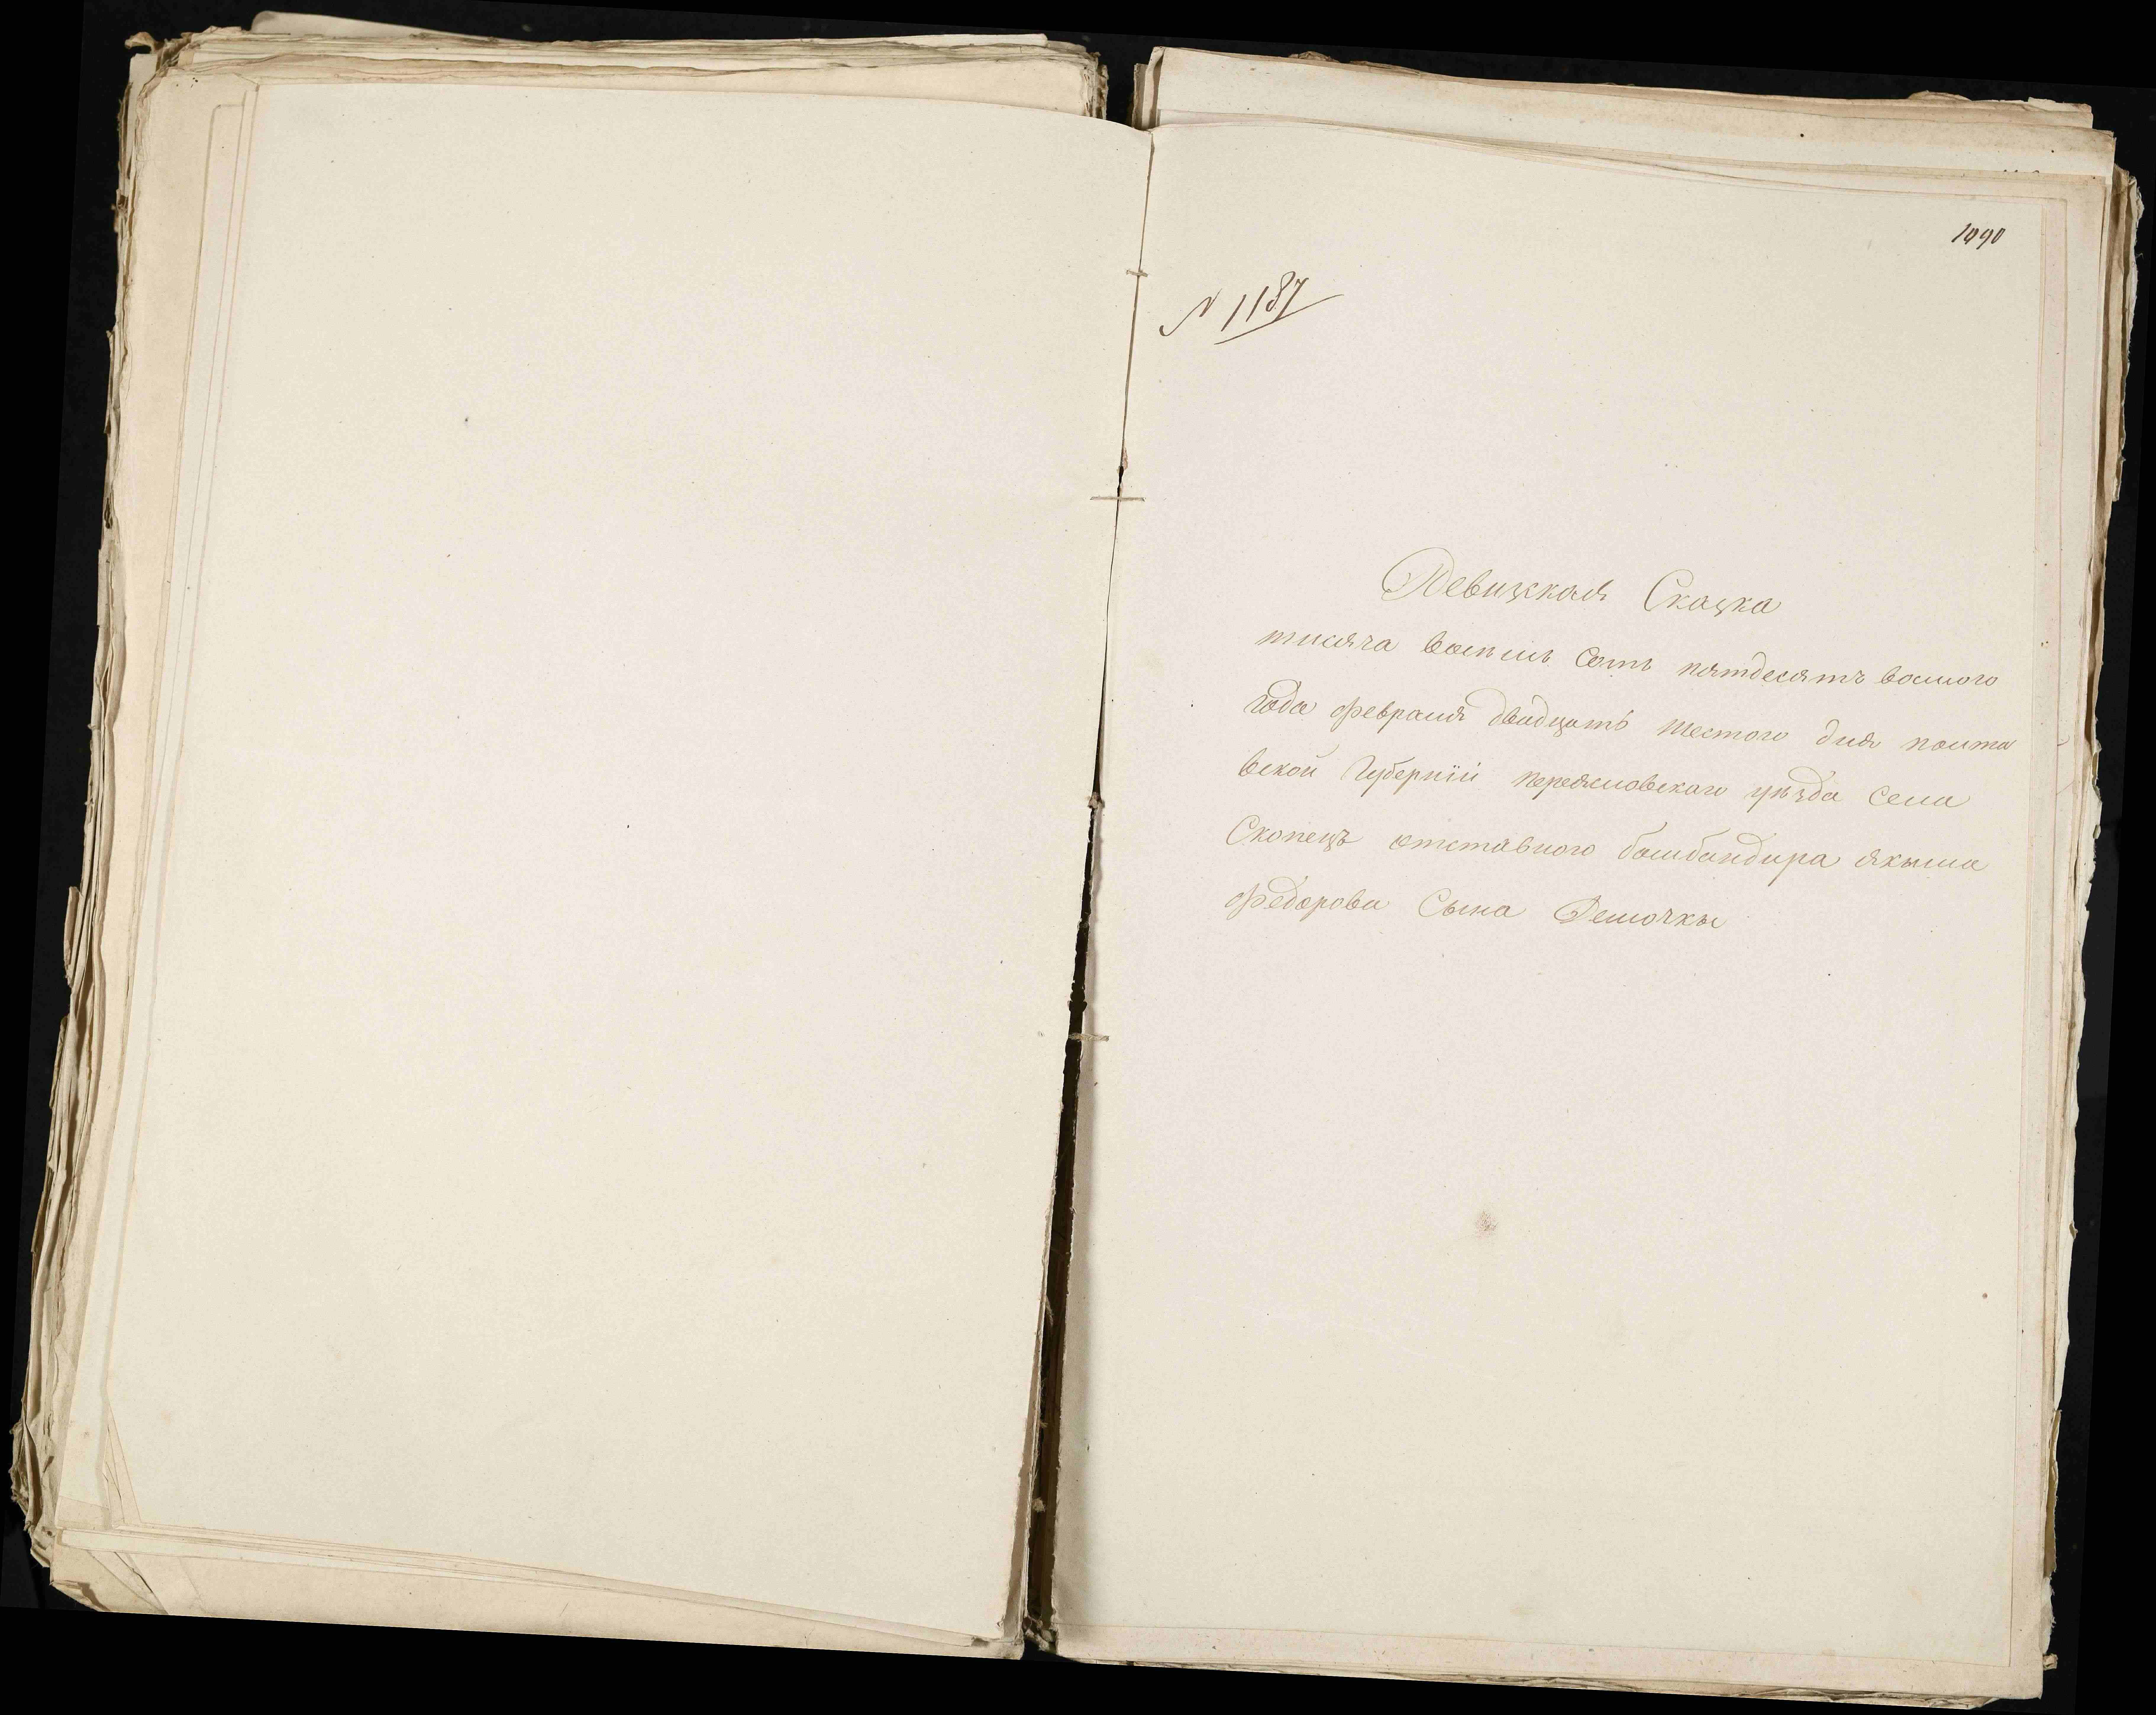 1090
N 1137
Ревизская Сказка
тисяча восемь сотъ пятдесятъ восмого
года февраля двадцать шестого дня полта
вской Губерніи переясловского уѣзда села
Скопецъ отставного бомбандира якыма
федорова Сына Демочкы